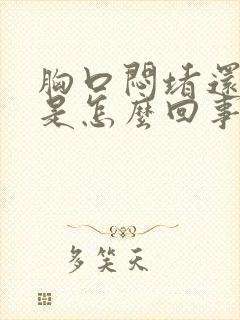 胸口悶堵還
是怎麼回事
多笑天